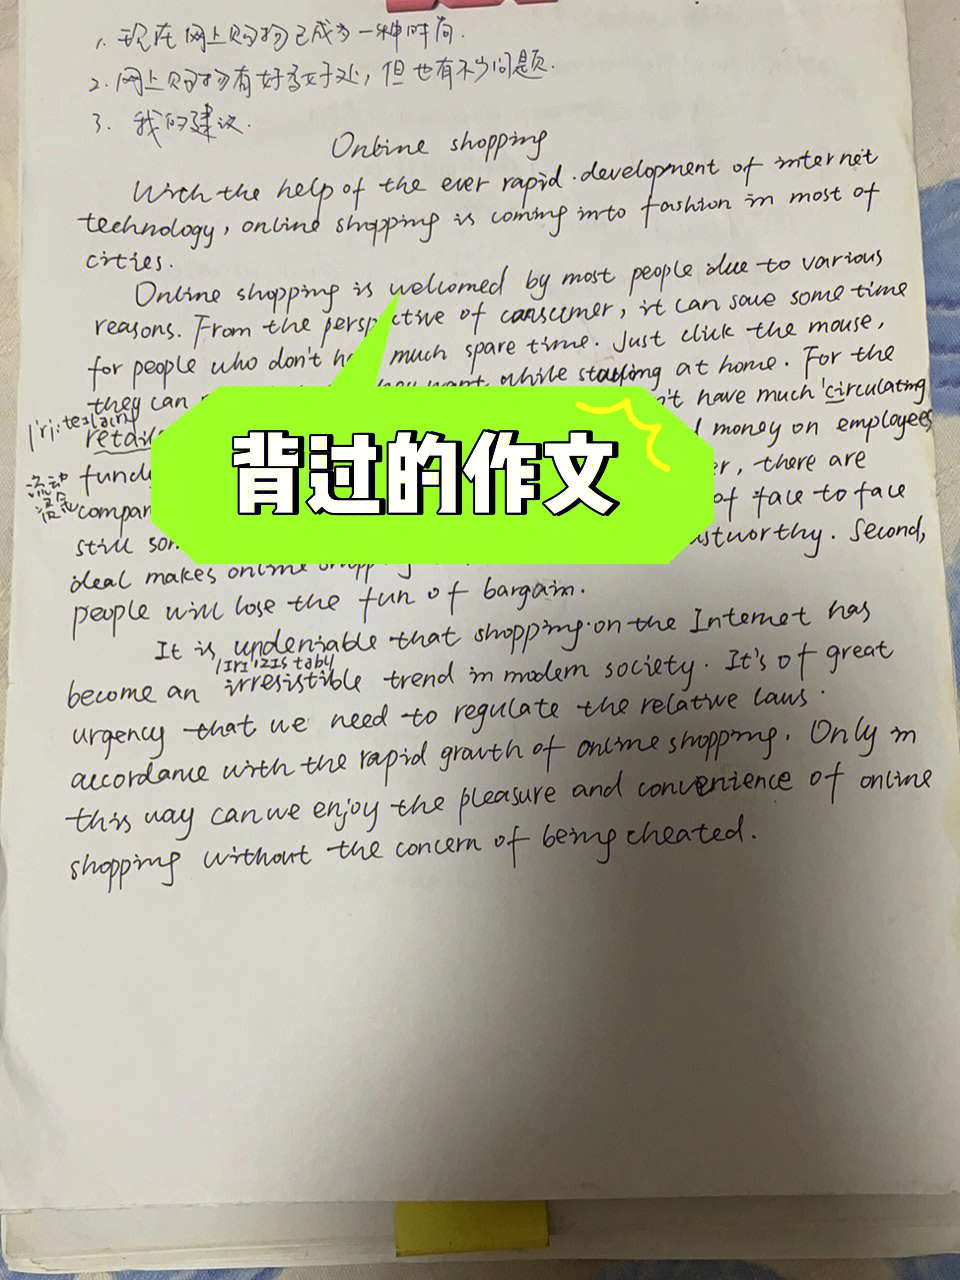 1. 现在网上购物已成为一种时尚.
2. 网上购物有好多好处，但也有不少问题.
3. 我的建议.
Online shopping
With the help of the ever rapid development of internet
technology, online shopping is coming into fashion in most of
cities.
Online shopping is welcomed by most people due to various
reasons. From the perspective of consumer, it can save some time
for people who don't much spare time. Just click the mouse,
they can they want while staying at home. For the
have much circulating
流动
资金
fund money on employees
er, there are
still of face to face
deal makes online trustworthy. Second,
people will lose the fun of bargain.
It is undeniable that shopping on the Internet has
become an irresistible trend in modern society. It's of great
urgency that we need to regulate the relative laws
accordance with the rapid growth of online shopping. Only in
this way can we enjoy the pleasure and convenience of online
shopping without the concern of being cheated.
背过的作文